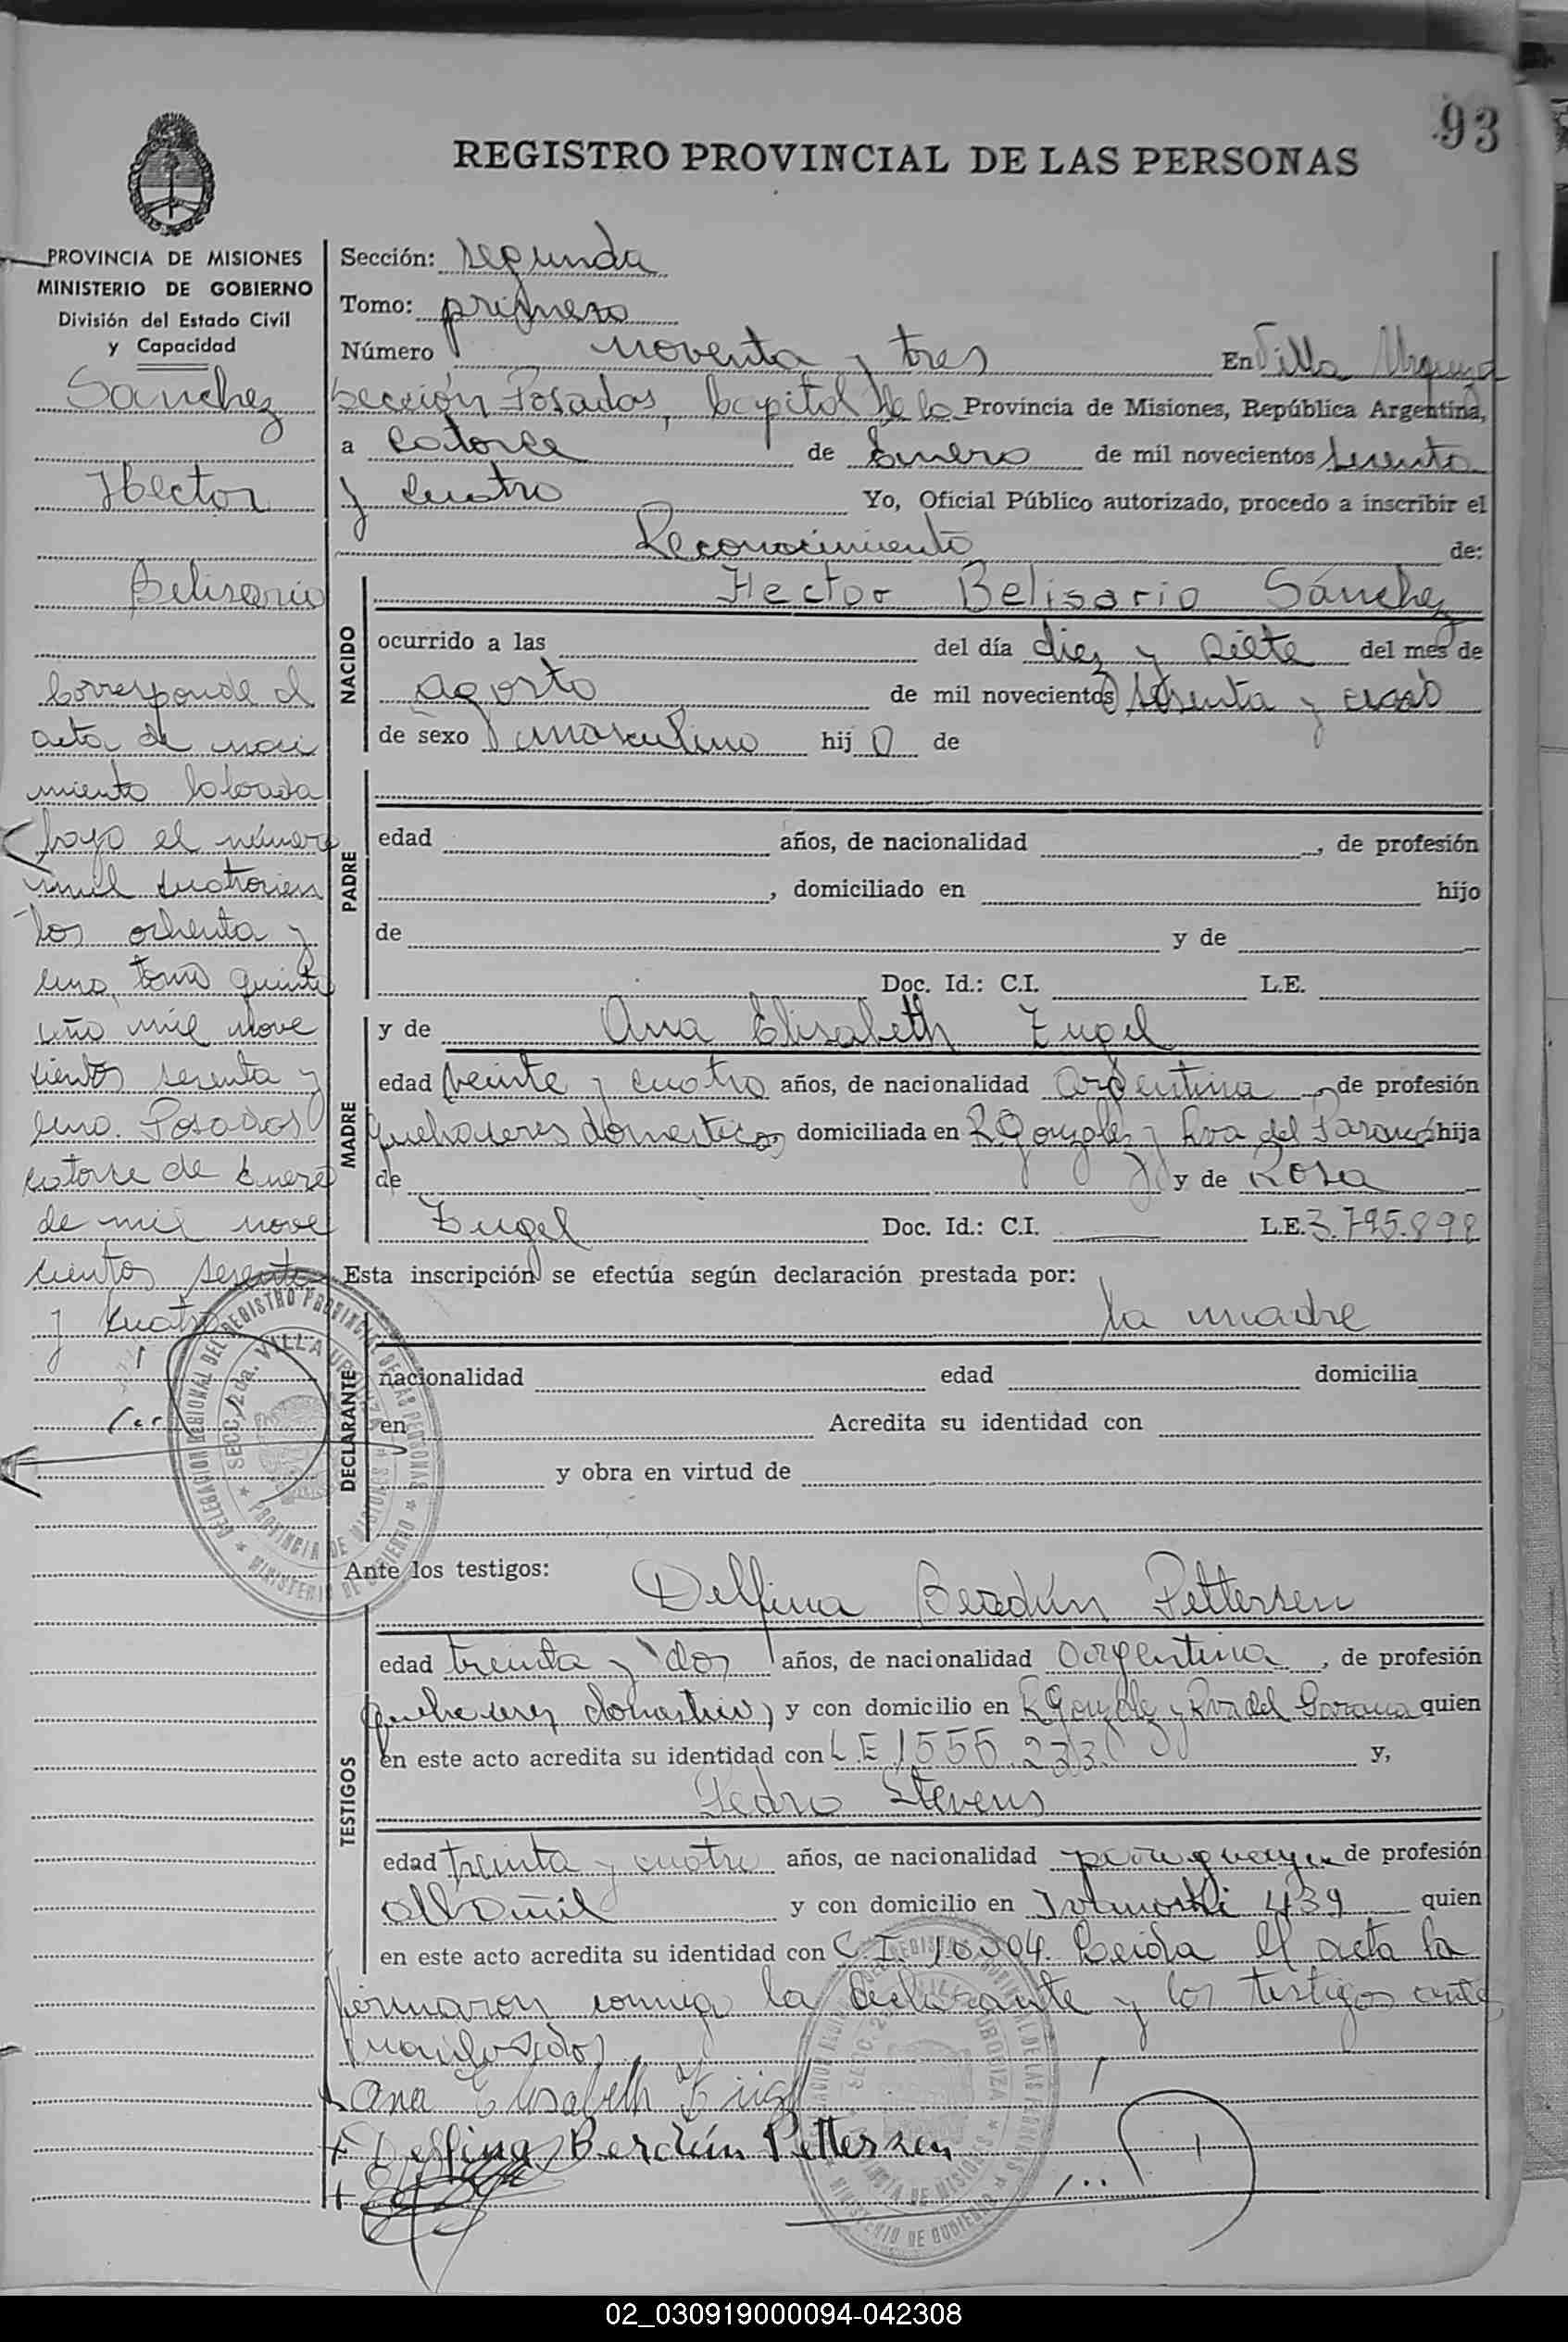 93
REGISTRO PROVINCIAL DE LAS PERSONAS
PROVINCIA DE MISIONES
MINISTERIO DE GOBIERNO
División del Estado Civil
y Capacidad
Sanchez
Hector
Belisario
Corresponde al
acta de naci
miento labrada
bajo el número
mil cuatrocien
tos ochenta y
uno, tomo quinto
año mil nove
cientos sesenta y
uno. Posadas
catorce de Enero
de mil nove
cientos sesenta
y cuatro
Sección: segunda
Tomo: primero
Número noventa y tres En Villa Urquiza
Sección Posadas, Capital de la Provincia de Misiones, República Argentina,
a catorce de Enero de mil novecientos sesenta
y cuatro Yo, Oficial Público autorizado, procedo a inscribir el
Reconocimiento de:
NACIDO
Hector Belisario Sánchez
ocurrido a las del día diez y siete del mes de
agosto de mil novecientos sesenta y
de sexo masculino hijo de
PADRE
edad años, de nacionalidad , de profesión
, domiciliado en hijo
de y de
Doc. Id.: C.I. L.E.
MADRE
y de Ana Elisabeth Zugel
edad veinte y cuatro años, de nacionalidad argentina, de profesión
quehaceres domesticos domiciliada en R Gonzalez y Rva del Paraná hija
de y de Rosa
Zugel Doc. Id.: C.I. L.E. 3.795.898
Esta inscripción se efectúa según declaración prestada por:
la madre
DECLARANTE
nacionalidad edad domicilia
en Acredita su identidad con
y obra en virtud de
Ante los testigos:
TESTIGOS
Delfina Berdún Pettersen
edad treinta y dos años, de nacionalidad argentina, de profesión
quehaceres domesticos y con domicilio en R Gonzalez y Rva del Parana quien
en este acto acredita su identidad con L E 1555.233 y,
Pedro Stevens
edad treinta y cuatro años, de nacionalidad paraguaya de profesión
albañil y con domicilio en 439 quien
en este acto acredita su identidad con C.I. Leida el acta la
firmaron conmigo la declarante y los testigos ante
Ana Elisabeth Zugel
+ Delfina Berdún Pettersen
+
DELEGACION REGIONAL DEL REGISTRO PROVINCIAL DE LAS PERSONAS
SECC. 2da. VILLA URQUIZA
PROVINCIA DE MISIONES
MINISTERIO DE GOBIERNO
02_030919000094-042308